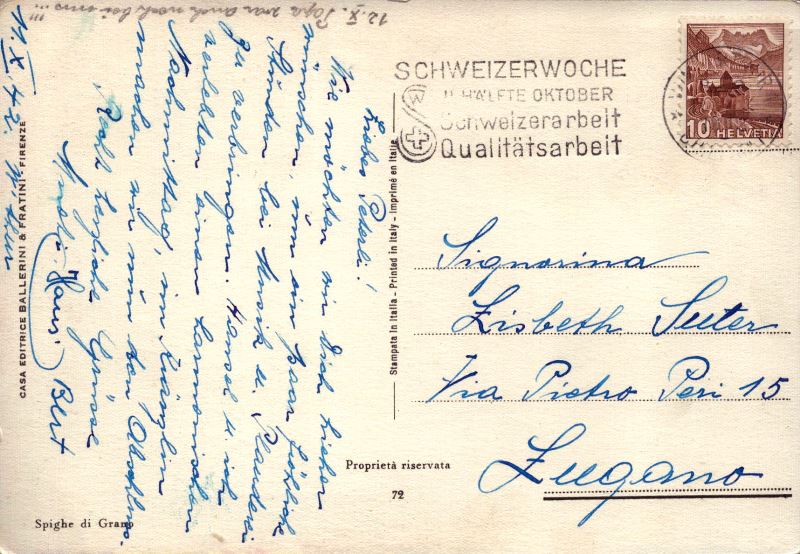 12.X. Papa war auch noch bei uns!!!
Liebes Peterli!
Wie möchten wir Dich hieher
wünschen, um ein paar fröhliche
Stunden bei Musik u. Plauderei
zu verbringen. Hansel u. ich
verlebten einen harmonischen
Nachmittag, im
machen wir nun den Abschluss.
Recht herzliche Grüsse
Hansi Bert
11.X.42. W'thur
CASA EDITRICE BALLERINI & FRATINI - FIRENZE
Spighe di Grano
Stampata in Italia - Printed in Italy - Imprimé en Italie
Proprietà riservata
72
SCHWEIZERWOCHE
II. HÄLFTE OKTOBER
Schweizerarbeit
Qualitätsarbeit
W
10 HELVETIA
Signorina
Lisbeth Suter
Via Pietro Peri 15
Lugano